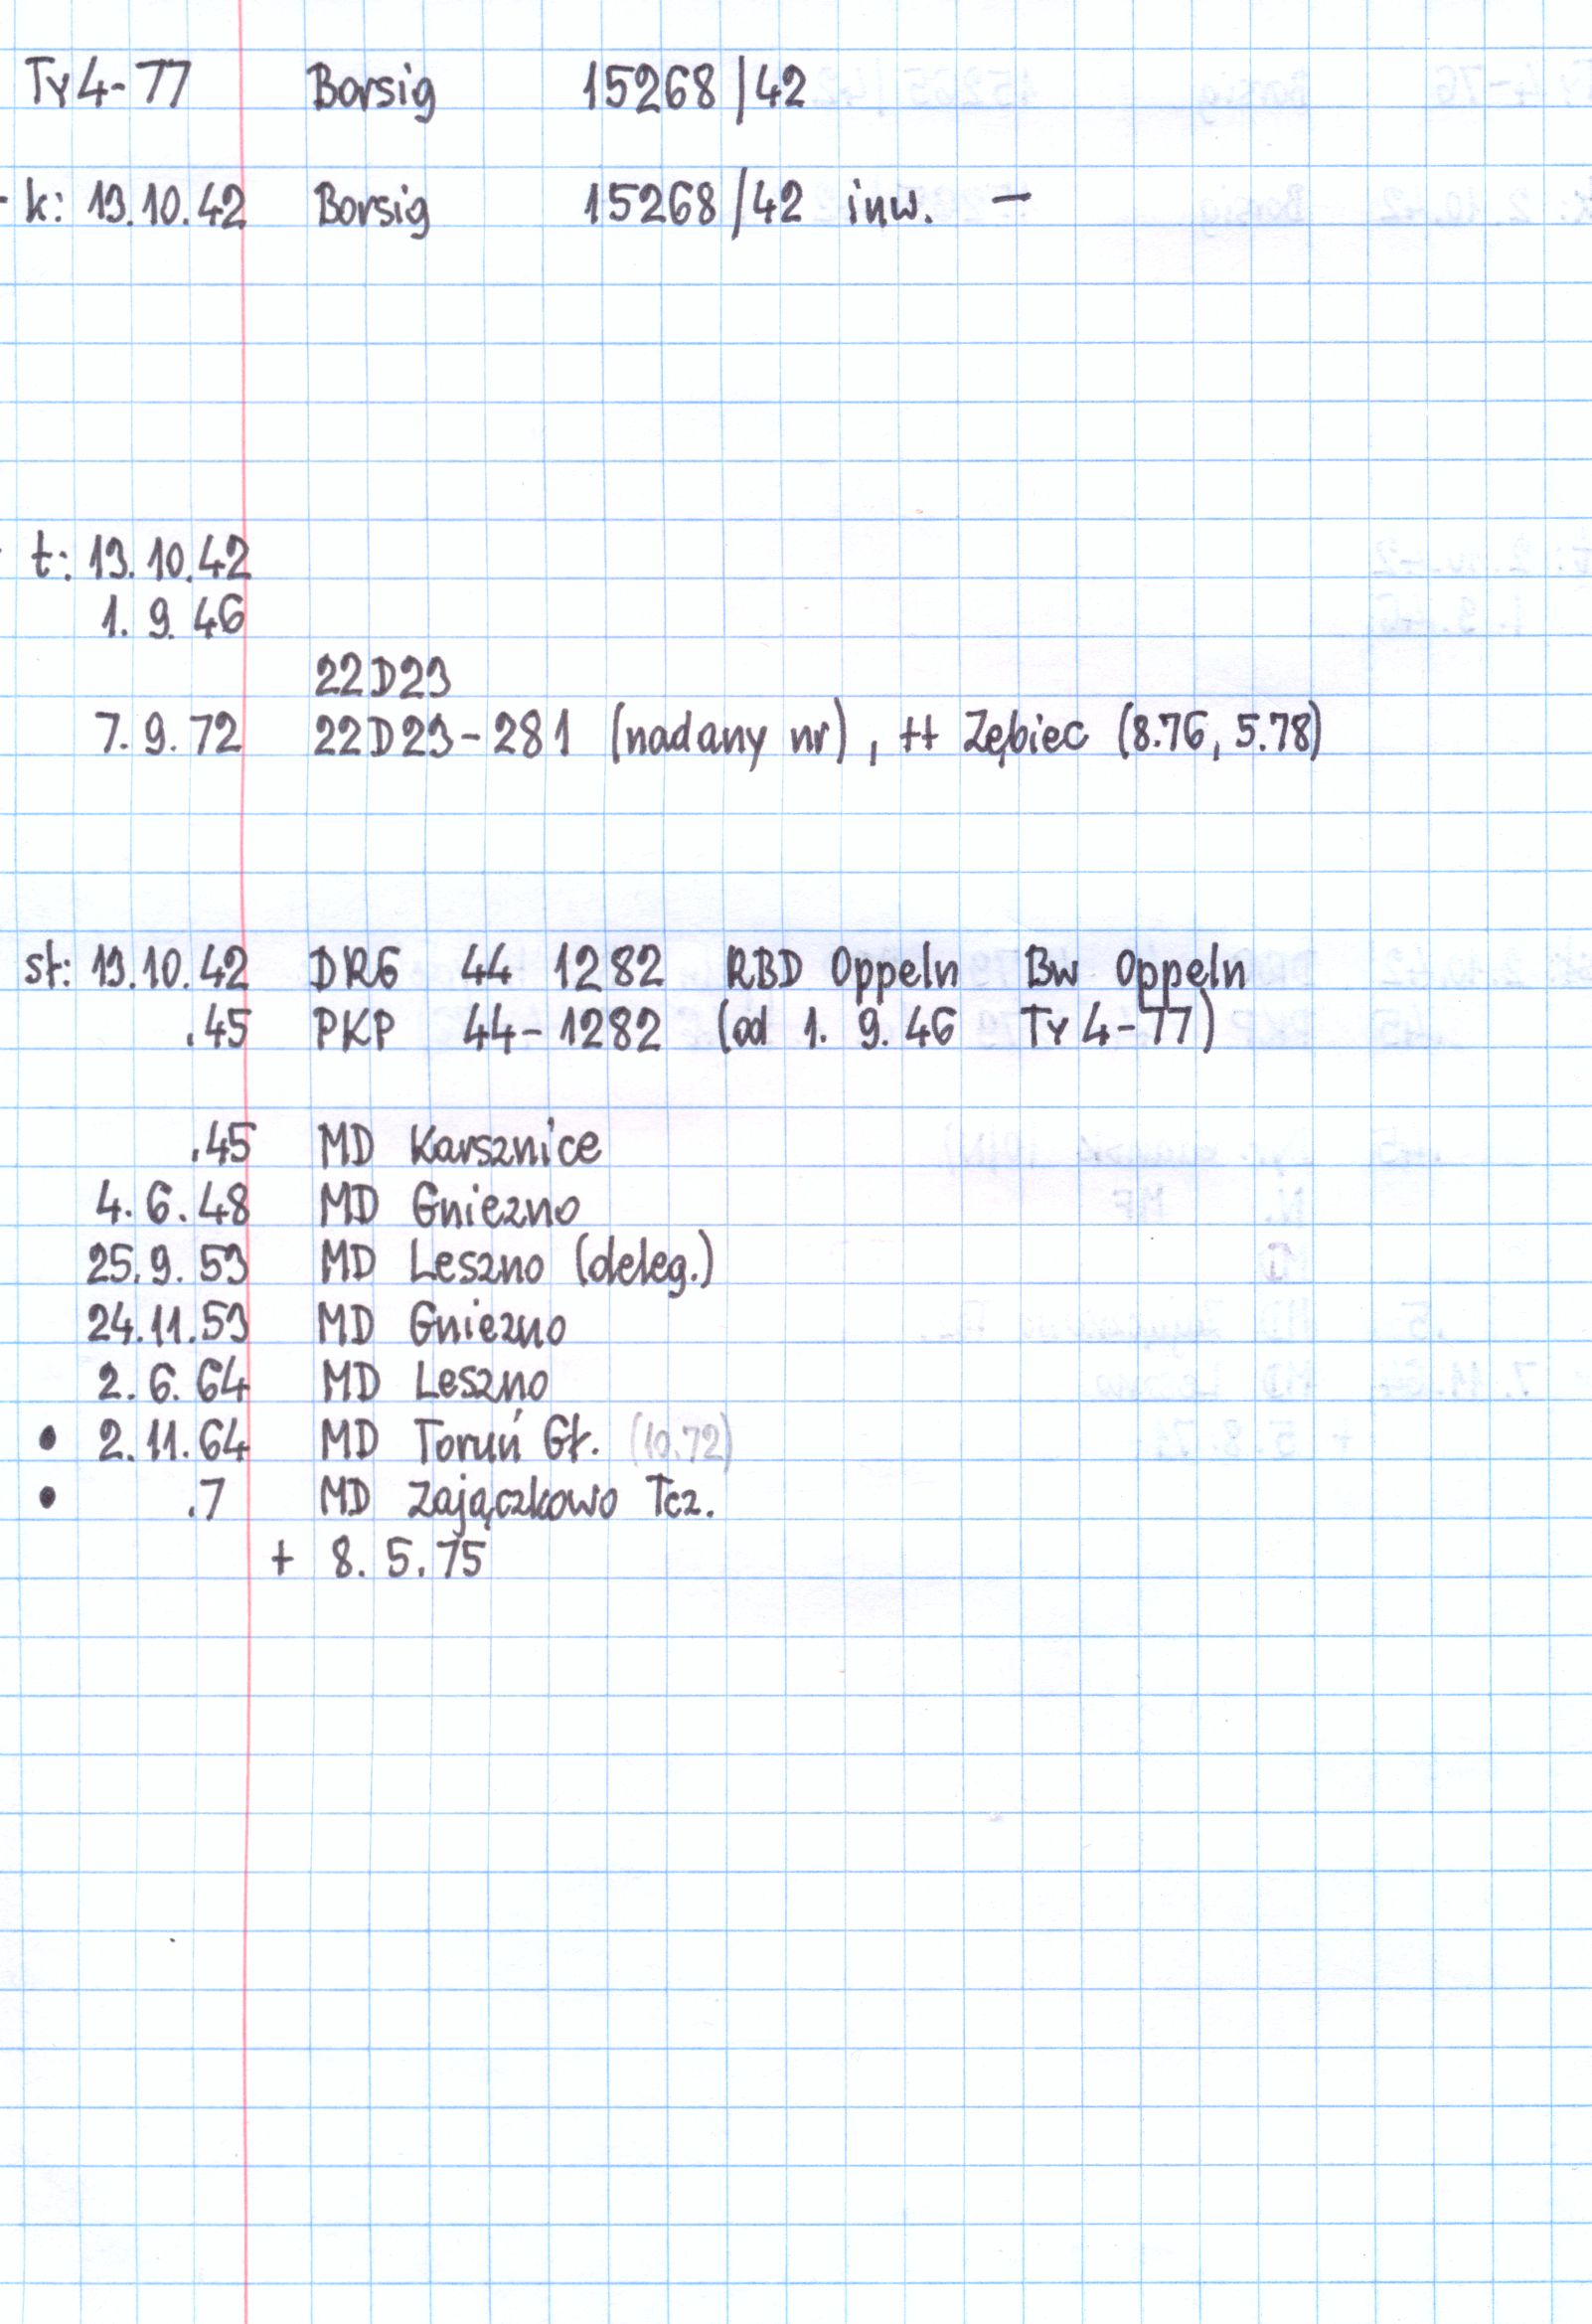 Ty4-77 Borsig 15268/42
k: 13.10.42 Borsig 15268/42 inw. -
t: 13.10.42
1. 9. 46
22D23
7. 9. 72 22D23-281 (nadany nr), ++ Zębiec (8.76, 5.78)
st: 13.10.42 DRG 44 1282 RBD Oppeln Bw Oppeln
.45 PKP 44-1282 (od 1. 9. 46 Ty4-77)
.45 MD Karsznice
4. 6. 48 MD Gniezno
25. 9. 53 MD Leszno (deleg.)
24.11.53 MD Gniezno
2. 6. 64 MD Leszno
• 2.11.64 MD Toruń Gł. (10.72)
• .7 MD Zajączkowo Tcz.
+ 8. 5. 75